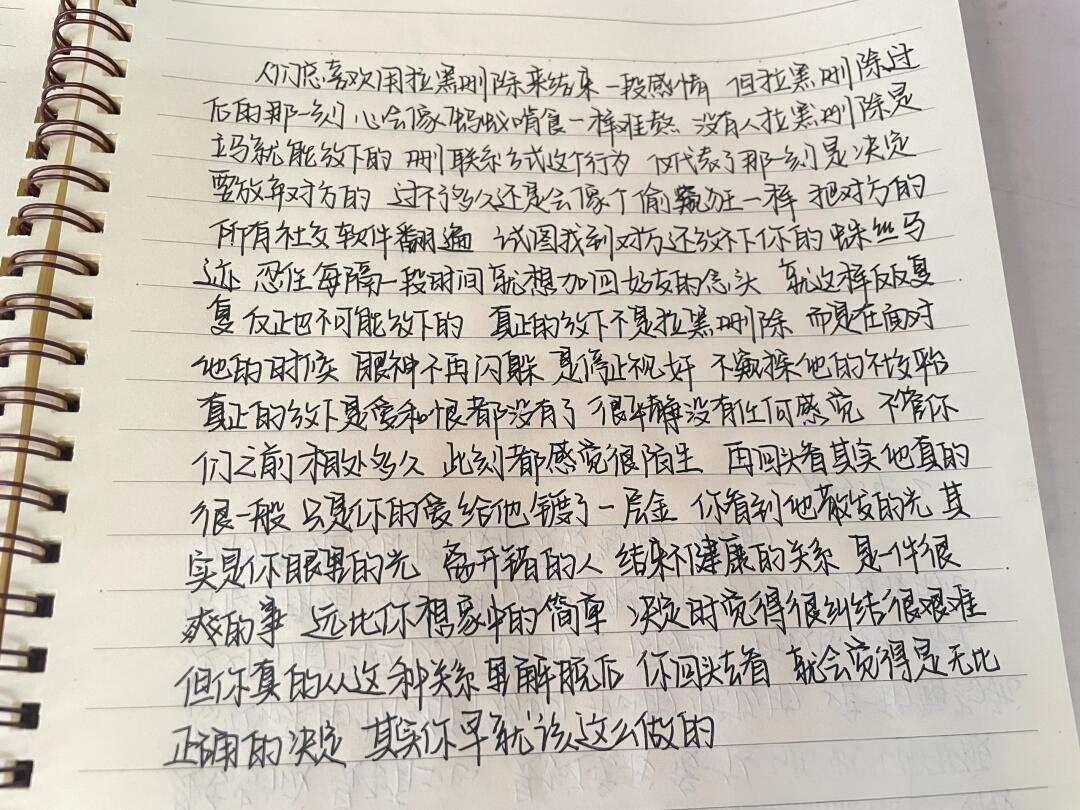 人们总喜欢用拉黑删除来结束一段感情 但拉黑删除过
后的那一刻 心会像蚂蚁啃食一样难熬 没有人拉黑删除是
立马就能放下的 删联系方式这个行为 仅代表了那一刻是决定
要放弃对方的 过不了多久还是会像个偷窥狂一样 把对方的
所有社交软件翻遍 试图找到对方还放不下你的蛛丝马
迹 忍住每隔一段时间就想加回好友的念头 就这样反反复
复 反正也不可能放下的 真正的放下不是拉黑删除 而是在面对
他的时候 眼神不再闪躲 是停止视奸 不窥探他的社交平台
真正的放下是爱和恨都没有了 很平静没有任何感觉 不管你
们之前相处多久 此刻都感觉很陌生 再回头看其实他真的
很一般 只是你的爱给他镀了一层金 你看到他散发的光 其
实是你眼里的光 离开错的人 结束不健康的关系 是一件很
爽的事 远比你想象中的简单 决定时觉得很纠结很艰难
但你真的从这种关系里解脱后 你回头去看 就会觉得是无比
正确的决定 其实你早就该这么做的